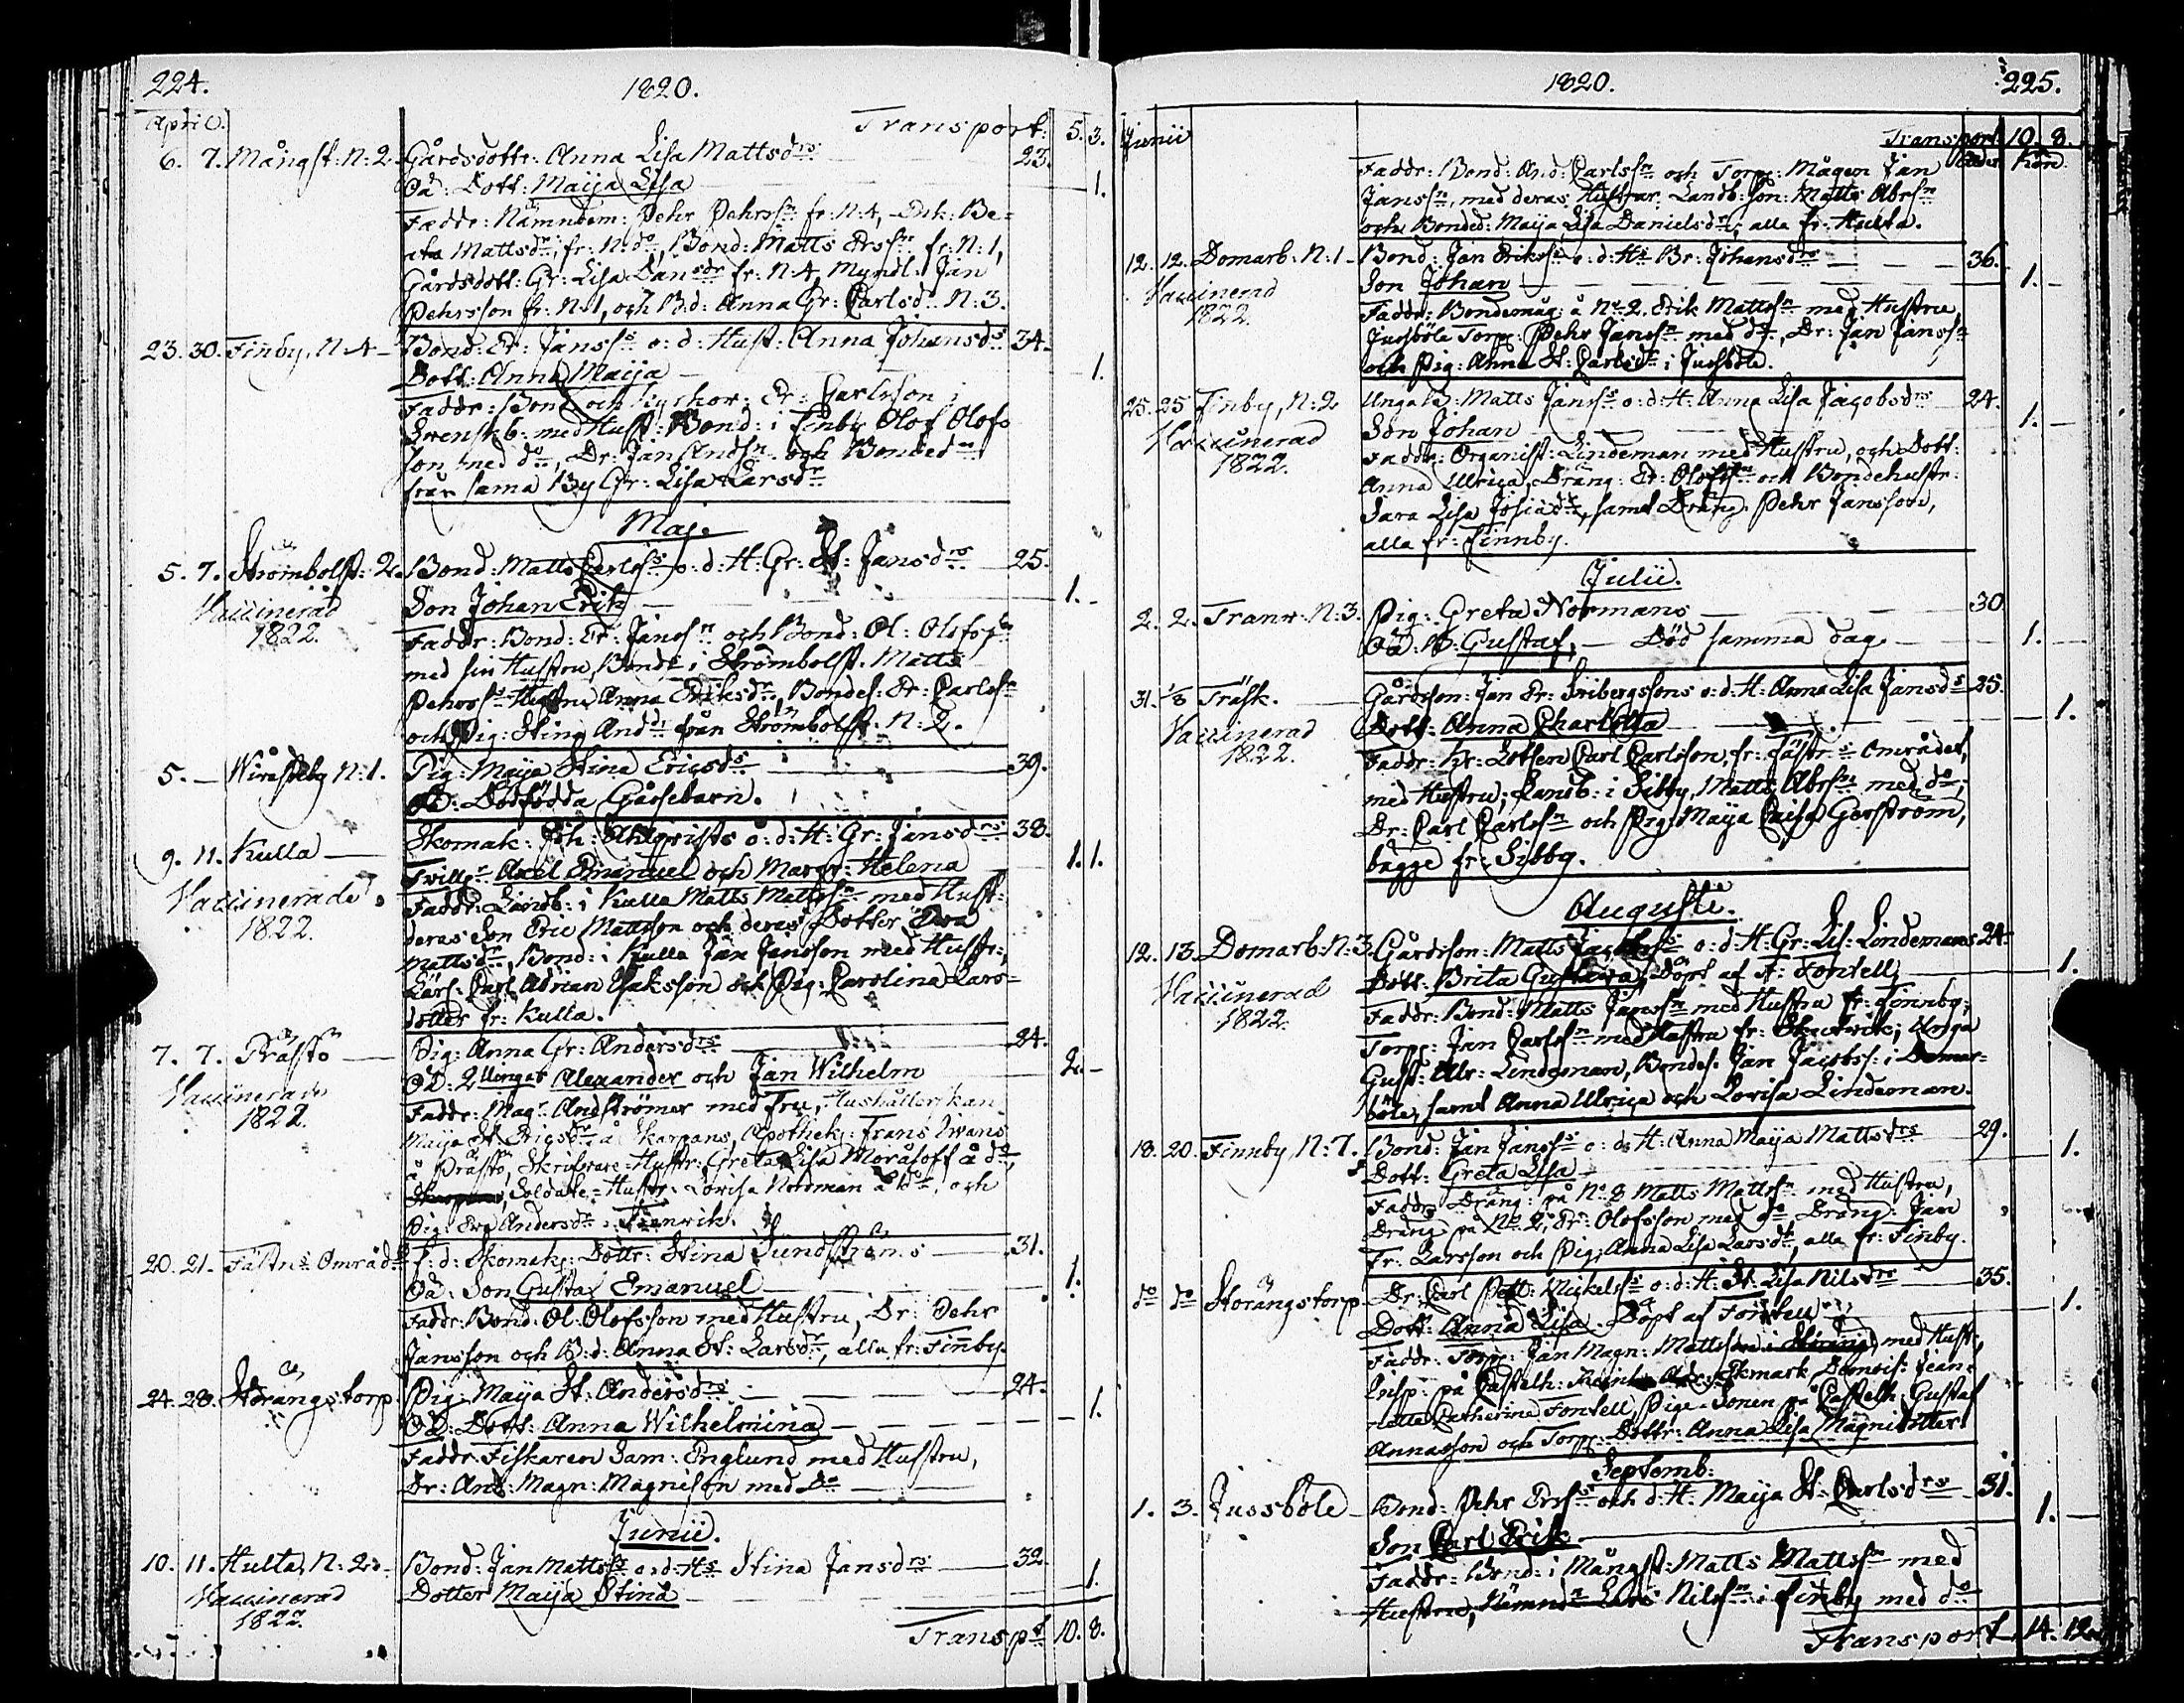 224.
1820.
April.
Transport. 5. 3.
6. 7. Mångst: N: 2. Gårdsdottr: Anna Lisa Mattsdrs 23.
Oä: Dott: Maija Lisa 1.
Faddr: Nämndem: Pehr Pehrssn fr: N: 4, Enk: Be=
ata Mattsdr, fr: N: do, Bond: Matts Ersn fr: N: 1,
Gårdsdott: Gr: Lisa Dansdr fr: N: 4, Myndl: Jan
Pehrsson fr: N: 1, och B.d: Anna Gr: Carlsd: N: 3.
23. 30. Finby, N: 4 Bond: Er: Janss o: d: Hust: Anna Johansds 34.
Dott: Anna Maija 1.
Faddr: Bond och Kyrkov: Er: Carlsson i
Svenskb: med Hust: Bond: i Finby Olof Olofs
son med do, Dr: Jan Andsn och Bonded
från sama By Gr: Lisa Larsdr
Maj.
5. 7. Strömbolst: 2. Bond: Matts Carlss o: d: H: Gr: St: Jansdrs 25.
Son Johan Erik 1.
Vaccinerad
1822.
Faddr: Bond: Er: Janssn och Bond: Ol: Olofssn
med sin Hustru, Bond: i Strömbolst. Matts
Pehrss Hustru Anna Eriksdr, Bondes: Er: Carlssn
och Pig: Stina Andd: från Strömbolst. N: 2.
5. Wiresteby N: 1. Pig: Maija Stina Ericsds 39.
oä: Dödfödda Gåssebarn.
9. 11. Kulla Skomak: Joh: Ahlqvists o: d: H: Gr: Jansdrs 38.
Tvillr Axel Emanuel och Margr: Helena 1. 1.
Vaccinerade
1822.
Faddr: Landb: i Kulla Matts Mattssn med Hust:
deras Son Eric Mattson och deras Dotter Eva
Mattsdr, Bond: i Kulla Jan Jansson med Hustr:
Lärl: Carl Adrian Isaksson och Pig: Carolina Lars=
dotter fr: Kulla.
7. 7. Prästö Pig: Anna Gr: Andersdrs 24.
Oä: 2llingar Alexander och Jan Wilhelm 2.
Vaccinerade
1822.
Faddr: Magr Andströmer med Fru, Hushållerskan
Maija St. Ericsdr å Skarpans, Apothek: Frans Iwans
å Prästö, Skrifvare=Hustr: Greta Lisa Moråsoff å do,
Soldate=Hustr: Lovisa Nordman å do, och
Pig: Eva Andersdr i Tranvik.
20. 21. Fästns Områd: f: d: Skomak: Dottr: Stina Sundströms 31.
Oä: Son Gustaf Emanuel 1.
Faddr: Bond: Ol: Olofsson med Hustru, Dr: Pehr
Jansson och B: d: Anna St: Larsdr, alla fr: Finby.
24. 28. Storängstorp. Pig: Maija St: Andersdrs 24.
Oä: Dott: Anna Wilhelmina 1.
Faddr: Fiskaren Sam: Englund med Hustru,
Dr: And: Magn: Magnison med do
Junii.
10. 11. Hulta, N: 2. Bond: Jan Mattss o: d: Hs Stina Jansdrs 32.
Dotter Maija Stina 1.
Vaccinerad
1822.
Transpt 10. 8.
1820.
225.
Junii
Transport 10. 8.
Faddr: Bond: And: Carlssn och Torp: Mågen Jan
Janssn, med deras Hustrur, Landb: son: Matts Abrsn
och Bonded: Maija Lisa Danielsdr, alla fr: Hulta.
12. 12. Domarb: N: 1 Bond: Jan Erikss o: d: Hs Br: Johansdrs 36.
Son Johan 1.
Vaccinerad
1822.
Faddr: Bondemåg: å No 2. Erik Mattssn med Hustru,
Jussböle Torp: Pehr Janssn med do, Dr: Jan Janssn
och Pig: Anna St: Carlsdr i Jussböle.
25. 25. Finby, N: 2 Unga B: Matts Janss o: d: H: Anna Lisa Jacobsdrs 24.
Son Johan 1.
Vaccinerad
1822.
Faddr: Organist: Lindeman med Hustru, och Dott:
Anna Ulrica, Dräng: Er: Olofssn och Bondehustr:
Sara Lisa Josiadr, samt Dräng: Pehr Jansson,
alla fr: Finnby.
Julii.
2. 2. Tranv: N: 3. Pig: Greta Normans 30
Oä: S: Gustaf, Död samma dag 1.
31. 1/8 Träsk. Gårdsson: Jan Er: Sribergssons o: d: H: Anna Lisa Jansds 25.
Dott: Anna Charlotta 1.
Vaccinerad
1822.
Faddr: Kr: Lotsen Carl Carlsson, fr: Fästns Området,
med Hustru; Landb: i Sibby, Matts Abrssn med do;
Dr: Carl Carlssn och Pig: Maija Caisa Gerström,
bägge fr: Sibby.
Augusti.
12. 13. Domarb: N: 3. Gårdsson: Matts Jacobss o: d: H: Gr: Lis: Lindemans 24.
Dott: Brita Gustava, Döpt af A: Fontell, 1.
Vaccinerad
1822.
Faddr: Bond: Matts Janssn med Hustru fr: Finnby;
Torp: Jan Carlssn med Hustru fr: ; Unga
Gust: Ulr: Lindeman, Bondes: Jan Jacobss: i Domar=
böle, samt Anna Ulrica och Lovisa Lindeman.
18. 20. Finnby N: 7. Bond: Jan Janss o: d: H: Anna Maija Mattsdrs 29.
Dott: Greta Lisa 1.
Faddr: Dräng: på No 8 Matts Mattssn med Hustru,
Dräng på No 2, Er: Olofsson med do, Dräng: Jan
Er: Larsson och Pig: Anna Lisa Larsdr, alla fr: Finby.
do do Storängstorp Dr: Carl Pett: Mickelss o: d: H: St: Lisa Nilsdrs 35.
Dott: Anna Lisa Döpt af Fontell 1.
Faddr: Torp: Jan Magn: Mattsson i Storäng, med Hust:,
Insp: på Castelh: Ekmark, Demois: Jean=
nette Catherine Fontell, Pige=Sonen på Castelh: Gustaf
Annasson och Torp: Dottr: Anna Lisa Magnidotter.
Septemb:
1. 3. Jussböle Bond: Pehr Erss och d: H: Maija St: Carlsdrs 31.
Son Carl Erik 1.
Faddr: Bond: i Mångst: Matts Mattssn med
Hustru, Nämndn Lars Nilssn i Finby med do
Transport 14. 12.